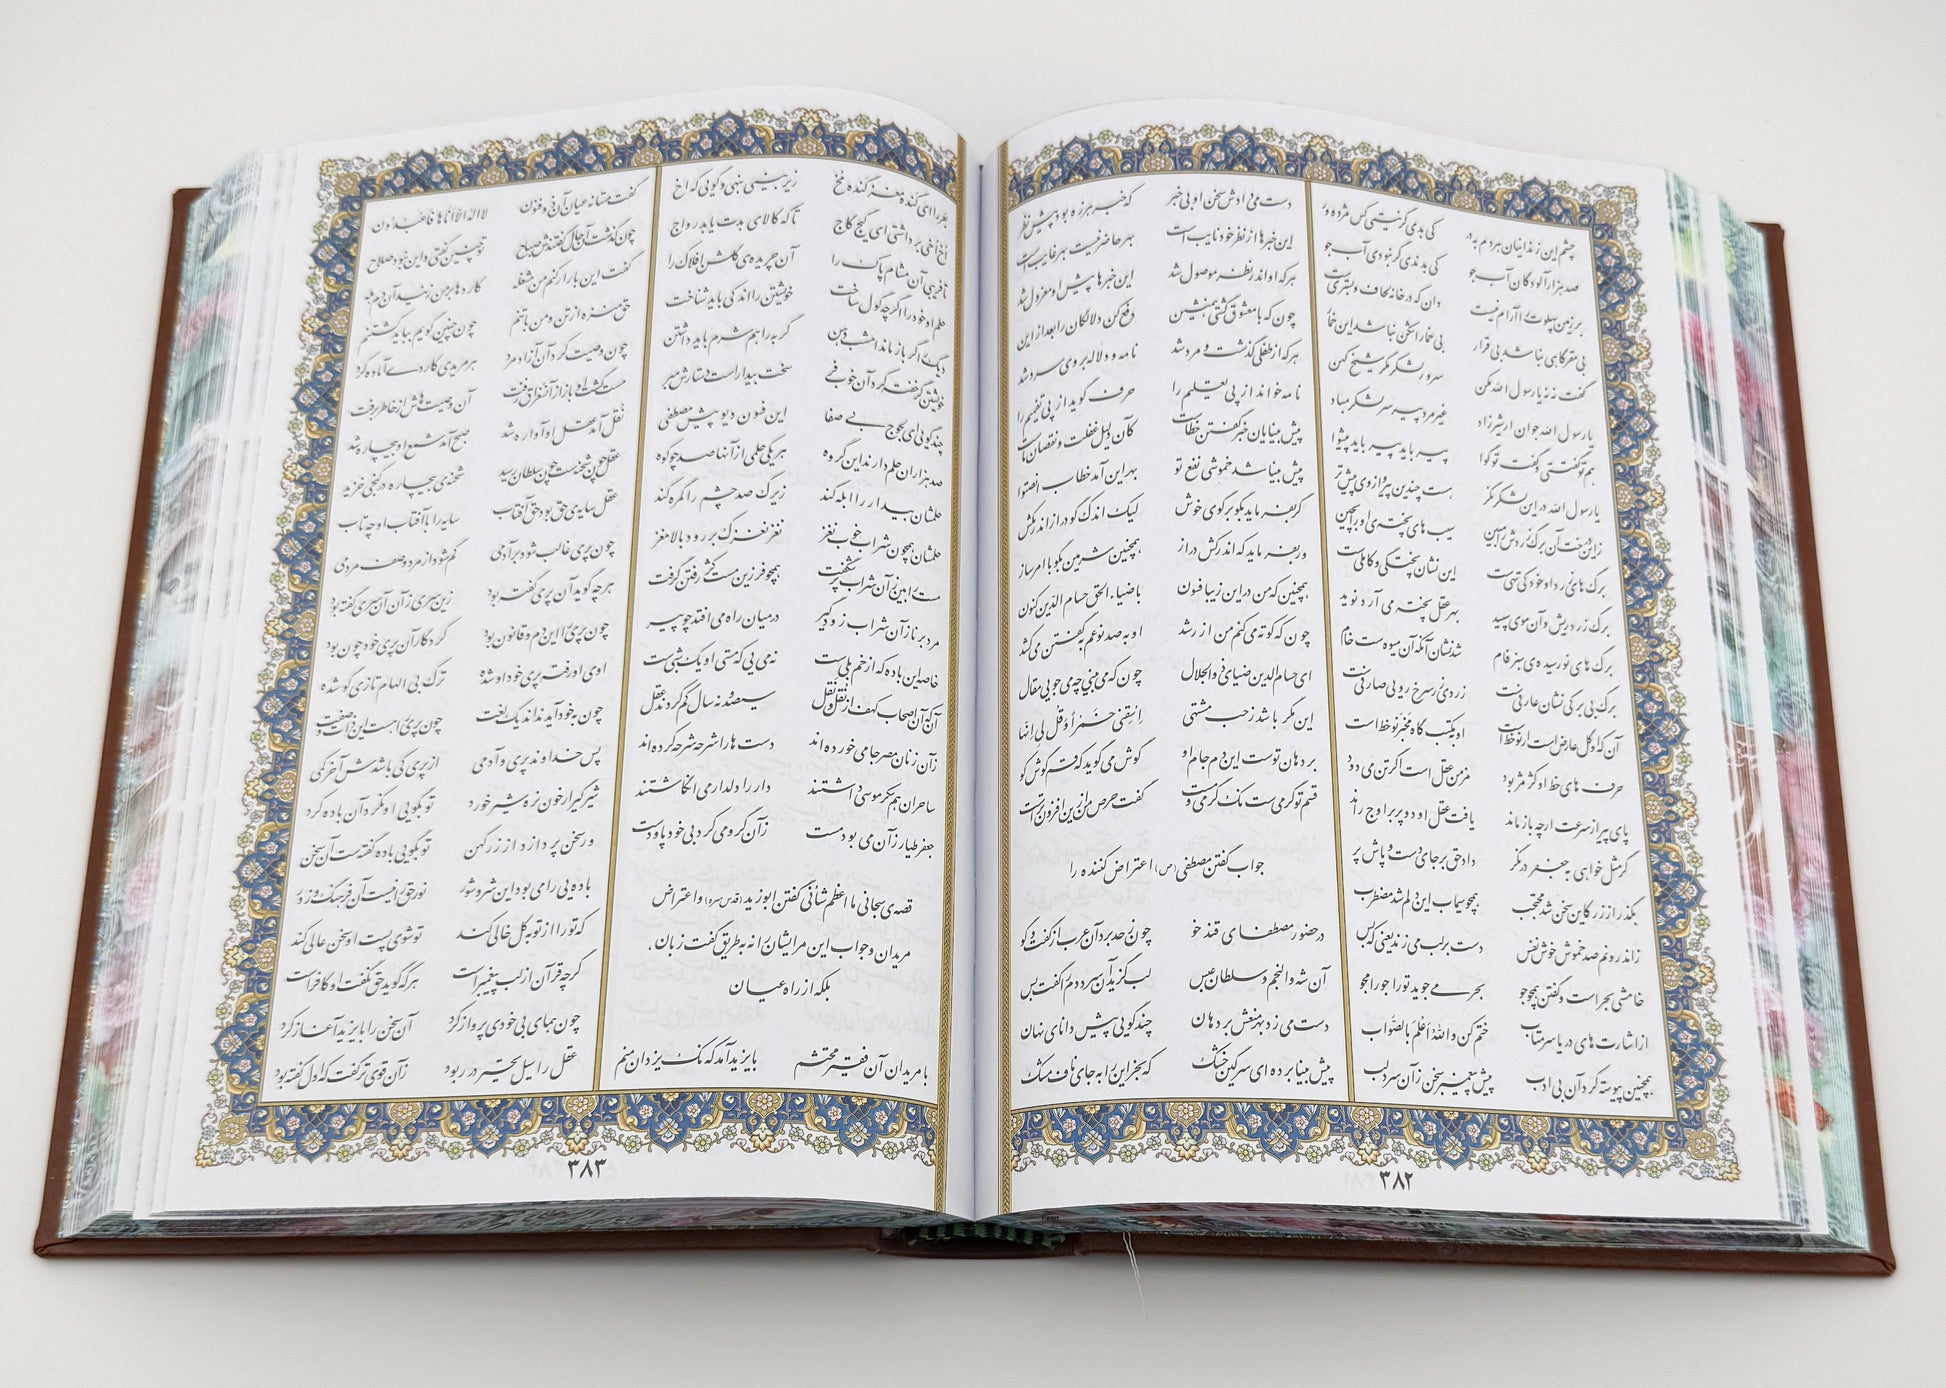 چشم این زندانیان هر دم به در کی بدی گر نیستی کس مژده ور
صد هزار آلودگان آب جو کی بدندی گر نبودی آب جو
بر زمین پهلوت را آرام نیست دان که در خانه لحاف و بستریست
بی مقرگاهی نباشد بی قرار بی خمار اشکن نباشد این خمار
گفت نه نه یا رسول الله مکن سرور لشکر مگر شیخ کهن
یا رسول الله جوان ار شیرزاد غیر مرد پیر سر لشکر مباد
هم تو گفتستی و گفت تو گوا پیر باید پیر باید پیشوا
یا رسول الله در این لشکر نگر هست چندین پیر و از وی پیش تر
زاین درخت آن برگ زردش را مبین سیب های پخته ی او را بچین
برگ های زرد او خود کی تهی ست این نشان پختگی و کاملی ست
برگ زرد ریش و آن موی سپید بهر عقل پخته می آرد نوید
برگ های نو رسیده ی سبز فام شد نشان آنکه آن میوه ست خام
برگ بی برگی نشان عارفی ست زردی زر سرخ رویی صارفی ست
آن که او گل عارض است ار نو خط است او به مکتب گاه مخبر نو خط است
حرف های خط او کژمژ بود مزمن عقل است اگر تن می دود
پای پیر از سرعت ار چه باز ماند یافت عقل او دو پر بر اوج راند
گر مثل خواهی به جعفر در نگر داد حق بر جای دست و پاش پر
بگذر از زر کاین سخن شد محتجب همچو سیماب این دلم شد مضطرب
ز اندرونم صد خموش خوش نفس دست بر لب می زند یعنی که بس
خامشی بحر است و گفتن همچو جو بحر می جوید تو را جو را مجو
از اشارت های دریا سر متاب ختم کن والله اعلم بالصواب
همچنین پیوسته کرد آن بی ادب پیش پیغمبر سخن زآن سرد لب
دست می دادش سخن او بی خبر که خبر هرزه بود پیش نظر
این خبرها از نظر خود نایب است بهر حاضر نیست بهر غایب است
هر که او اندر نظر موصول شد این خبرها پیش او معزول شد
چون که با معشوق گشتی همنشین دفع کن دلالگان را بعد از این
هر که از طفلی گذشت و مرد شد نامه و دلاله بر وی سرد شد
نامه خواند از پی تعلیم را حرف گوید از پی تفهیم را
پیش بینایان خبر گفتن خطاست کآن دلیل غفلت و نقصان ماست
پیش بینا شد خموشی نفع تو بهر این آمد خطاب انصتوا
گر بفرماید بگو بر گوی خوش لیک اندک گو دراز اندر مکش
ور بفرماید که اندر کش دراز همچنین شرمین بگو با امر ساز
همچنین که من در این زیبا فسون با ضیاء الحق حسام الدین کنون
چون که کوته می کنم من از رشد او به صد نوعم به گفتن می کشد
ای حسام الدین ضیای ذوالجلال چون که می بینی چه می جویی مقال
این مگر باشد ز حب مشتهی اسقنی خمرا و قل لی انها
بر دهان توست این دم جام او گوش می گوید که قسم گوش کو
قسم تو گرمی ست نک گرمی و مست گفت حرص من از این افزون تر است
جواب گفتن مصطفی (ص) اعتراض کننده را
در حضور مصطفای قند خو چون ز حد برد آن عرب از گفت و گو
آن شه والنجم و سلطان عبس لب گزید آن سرد دم را گفت بس
دست می زد بهر منعش بر دهان چند گویی پیش دانای نهان
پیش بینا برده ای سرگین خشک که بخر این را به جای ناف مشک
۳۸۲
بعر را ای گنده مغز گنده مخ زیر بینی بنهی و گویی که اخ
اخ اخی برداشتی ای گیج گاج تا که کالای بدت یابد رواج
تا فریبی آن مشام پاک را آن چریده ی گلشن افلاک را
حلم او خود را اگر چه گول ساخت خویشتن را اندکی باید شناخت
دیگ را گر باز ماند امشب دهن گربه را هم شرم باید داشتن
خویشتن گر خفته کرد آن خوب فر سخت بیدار است دستارش مبر
چند گویی ای لجوج بی صفا این فسون دیو پیش مصطفی
صد هزاران حلم دارند این گروه هر یکی حلمی از آنها صد چو کوه
حلمشان بیدار را ابله کند زیرک صد چشم را گمره کند
حلمشان همچون شراب خوب نغز نغز نغزک بر رود بالای مغز
مست را بین زآن شراب پر شگفت همچو فرزین مست کژ رفتن گرفت
مرد برنا زآن شراب زودگیر در میان راه می افتد چو پیر
خاصه این باده که از خم بلی ست نه میی که مستی او یک شبی ست
آن که آن اصحاب کهف از نقل و نقل سیصد و نه سال گم کردند عقل
زآن زنان مصر جامی خورده اند دست ها را شرحه شرحه کرده اند
ساحران هم سکر موسی داشتند دار را دلدار می انگاشتند
جعفر طیار زآن می بود مست زآن گرو می کرد بی خود پا و دست
قصه ی سبحانی ما اعظم شأنی گفتن ابویزید (قدس سره) و اعتراض
مریدان و جواب این مر ایشان را نه به طریق گفت زبان،
بلکه از راه عیان
با مریدان آن فقیر محتشم بایزید آمد که نک یزدان منم
گفت مستانه عیان آن ذوفنون لا اله الا انا ها فاعبدون
چون گذشت آن حال گفتندش صباح تو چنین گفتی و این نبود صلاح
گفت این بار ار کنم من مشغله کاردها بر من زنید آن دم هله
حق منزه از تن و من با تنم چون چنین گویم بباید کشتنم
چون وصیت کرد آن آزاد مرد هر مریدی کاردی آماده کرد
مست گشت او باز از آن سغراق زفت آن وصیت هاش از خاطر برفت
نقل آمد عقل او آواره شد صبح آمد شمع او بیچاره شد
عقل چون شحنه ست چون سلطان رسید شحنه ی بیچاره در کنجی خزید
عقل سایه ی حق بود حق آفتاب سایه را با آفتاب او چه تاب
چون پری غالب شود بر آدمی گم شود از مرد وصف مردمی
هر چه گوید آن پری گفته بود زین سری زآن آن سری گفته بود
چون پری را این دم و قانون بود کردگار آن پری خود چون بود
اوی او رفته پری خود او شده ترک بی الهام تازی گو شده
چون به خود آید نداند یک لغت چون پری را هست این ذات و صفت
پس خداوند پری و آدمی از پری کی باشدش آخر کمی
شیر گیر ار خون نره شیر خورد تو بگویی او نکرد آن باده کرد
ور سخن پردازد از زر کهن تو بگویی باده گفته ست آن سخن
باده یی را می بود این شر و شور نور حق را نیست آن فرهنگ و زور
که تو را از تو به کل خالی کند تو شوی پست او سخن عالی کند
گر چه قرآن از لب پیغمبر است هر که گوید حق نگفت او کافر است
چون همای بی خودی پرواز کرد آن سخن را بایزید آغاز کرد
عقل را سیل تحیر در ربود زآن قوی تر گفت که اول گفته بود
۳۸۳